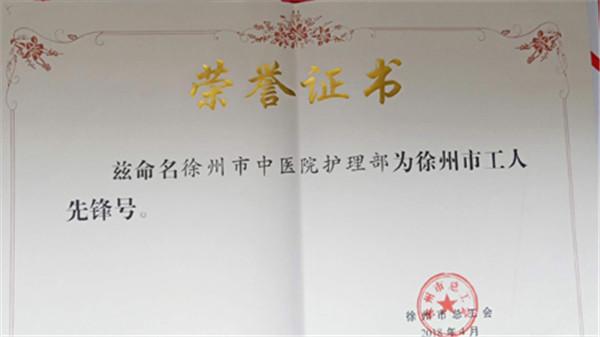 荣誉证书
兹命名徐州市中医院护理部为徐州市工人
先锋号。
徐州市总工会
徐州市总工会
2018年4月